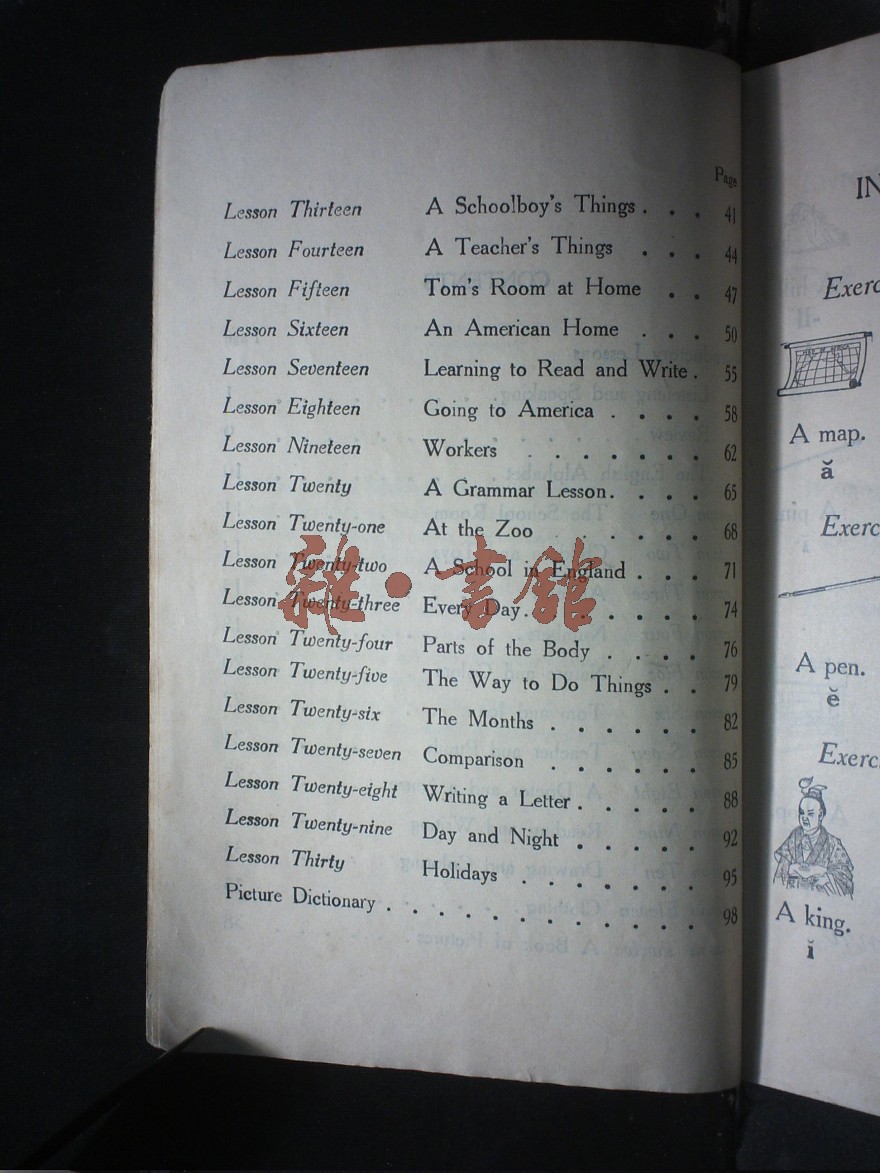 Page
Lesson Thirteen A Schoolboy's Things . . . 41
Lesson Fourteen A Teacher's Things . . . 44
Lesson Fifteen Tom's Room at Home . . 47
Lesson Sixteen An American Home . . . 50
Lesson Seventeen Learning to Read and Write . 55
Lesson Eighteen Going to America . . . . 58
Lesson Nineteen Workers . . . . . . . 62
Lesson Twenty A Grammar Lesson . . . . 65
Lesson Twenty-one At the Zoo . . . . . 68
Lesson Twenty-two A School in England . . . 71
Lesson Twenty-three Every Day . . . . . . 74
Lesson Twenty-four Parts of the Body . . . . 76
Lesson Twenty-five The Way to Do Things . . 79
Lesson Twenty-six The Months . . . . . . 82
Lesson Twenty-seven Comparison . . . . . . 85
Lesson Twenty-eight Writing a Letter . . . . . 88
Lesson Twenty-nine Day and Night . . . . . 92
Lesson Thirty Holidays . . . . . . . 95
Picture Dictionary . . . . . . . . . . . 98
雜·書館
IN
Exerc
A map.
ă
Exerc
A pen.
ĕ
Exerc
A king.
ĭ